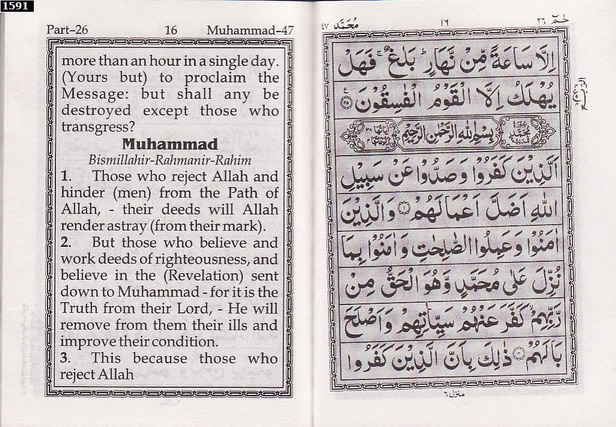 1591
Part-26 16 Muhammad-47
more than an hour in a single day.
(Yours but) to proclaim the
Message: but shall any be
destroyed except those who
transgress?
Muhammad
Bismillahir-Rahmanir-Rahim
1. Those who reject Allah and
hinder (men) from the Path of
Allah, - their deeds will Allah
render astray (from their mark).
2. But those who believe and
work deeds of righteousness, and
believe in the (Revelation) sent
down to Muhammad - for it is the
Truth from their Lord, - He will
remove from them their ills and
improve their condition.
3. This because those who
reject Allah
حٰمٓ ٢٦ ١٦ مُحَمَّد ٤٧
اِلَّا سَاعَةً مِّنْ نَّهَارٍ ؕ بَلٰغٌ ۚ فَهَلْ
يُهْلَكُ اِلَّا الْقَوْمُ الْفٰسِقُوْنَ ﴿٣٥﴾
بِسْمِ اللّٰهِ الرَّحْمٰنِ الرَّحِيْمِ
اَلَّذِيْنَ كَفَرُوْا وَصَدُّوْا عَنْ سَبِيْلِ
اللّٰهِ اَضَلَّ اَعْمَالَهُمْ ﴿١﴾ وَالَّذِيْنَ
اٰمَنُوْا وَعَمِلُوا الصّٰلِحٰتِ وَاٰمَنُوْا بِمَا
نُزِّلَ عَلٰى مُحَمَّدٍ وَّهُوَ الْحَقُّ مِنْ
رَّبِّهِمْ ۙ كَفَّرَ عَنْهُمْ سَيِّاٰتِهِمْ وَاَصْلَحَ
بَالَهُمْ ﴿٢﴾ ذٰلِكَ بِاَنَّ الَّذِيْنَ كَفَرُوا
منزل ٦